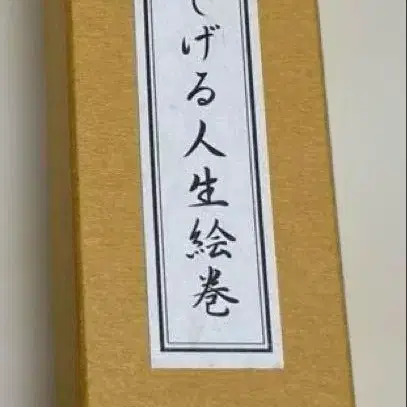 しげる人生絵巻